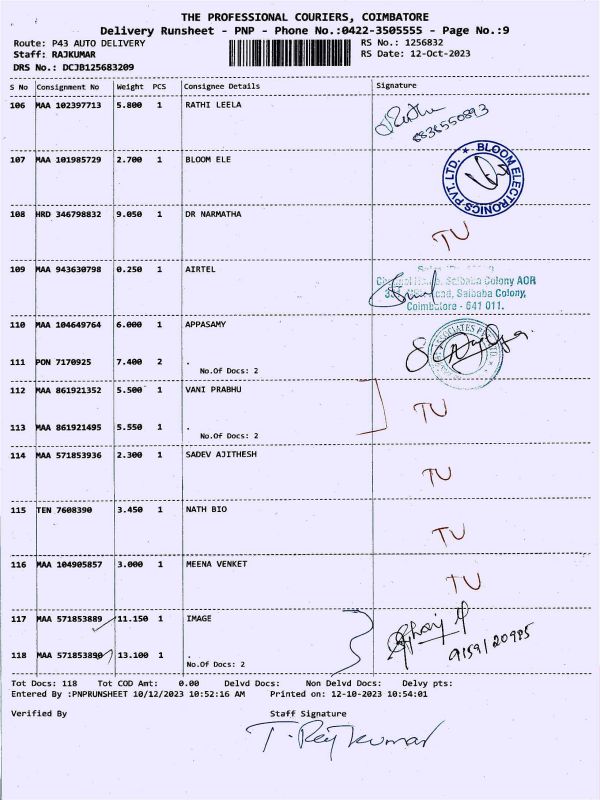 THE PROFESSIONAL COURIERS, COIMBATORE
Delivery Runsheet - PNP - Phone No.:0422-3505555 - Page No.:9
Route: P43 AUTO DELIVERY RS No.: 1256832
Staff: RAJKUMAR RS Date: 12-Oct-2023
DRS No.: DCJB125683209
S No Consignment No Weight PCS Consignee Details Signature
106 MAA 102397713 5.800 1 RATHI LEELA
107 MAA 101985729 2.700 1 BLOOM ELE
BLOOM ELECTRONICS PVT. LTD.
108 HRD 346798832 9.050 1 DR NARMATHA
TU
109 MAA 943630798 0.250 1 AIRTEL
Saibaba Colony AOR
Saibaba Colony,
Coimbatore - 641 011.
110 MAA 104649764 6.000 1 APPASAMY
111 PON 7170925 7.400 2 .
No.Of Docs: 2
112 MAA 861921352 5.500 1 VANI PRABHU
TU
113 MAA 861921495 5.550 1 .
No.Of Docs: 2
114 MAA 571853936 2.300 1 SADEV AJITHESH
TU
115 TEN 7608390 3.450 1 NATH BIO
TU
116 MAA 104905857 3.000 1 MEENA VENKET
TU
117 MAA 571853889 11.150 1 IMAGE
9159120985
118 MAA 571853890 13.100 1 .
No.Of Docs: 2
Tot Docs: 118 Tot COD Amt: 0.00 Delvd Docs: Non Delvd Docs: Delvy pts:
Entered By :PNPRUNSHEET 10/12/2023 10:52:16 AM Printed on: 12-10-2023 10:54:01
Verified By Staff Signature
T. Rajkumar